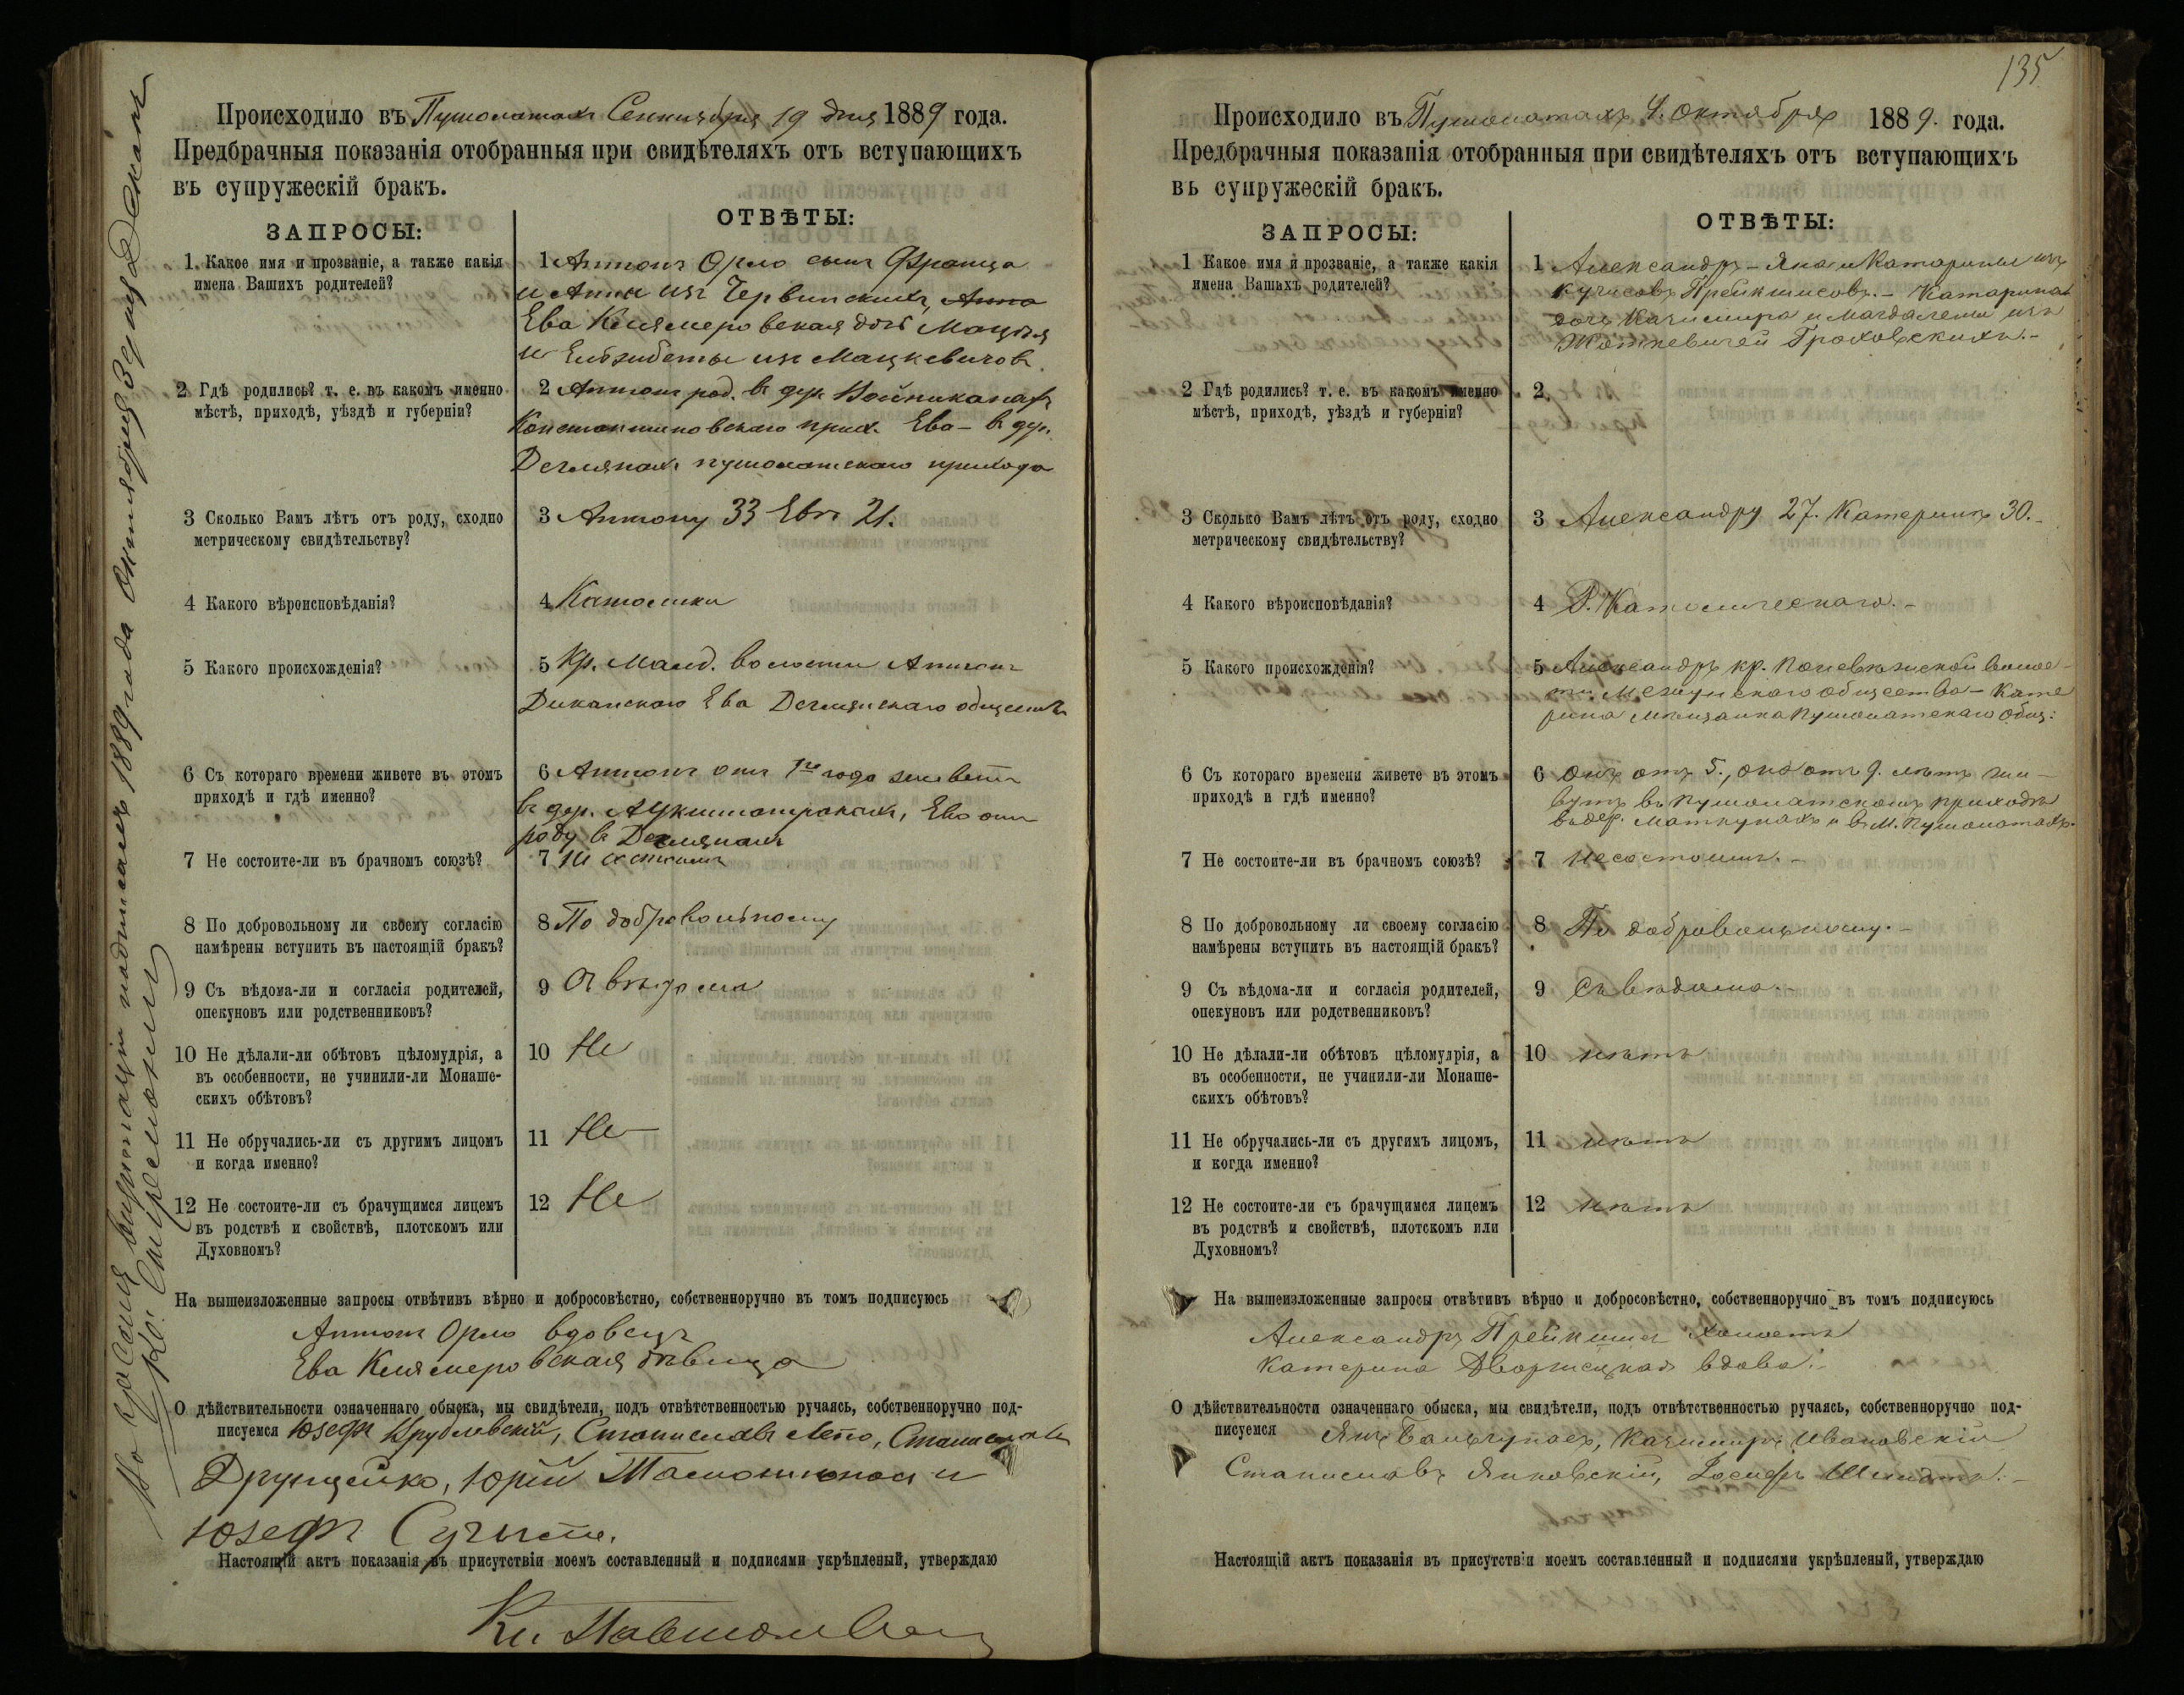 Происходило въ Пушолатахъ Сентября 19 дня 1889 года.
Предбрачныя показанія отобранныя при свидѣтеляхъ отъ вступающихъ
въ супружескій бракъ.
ЗАПРОСЫ:
ОТВѢТЫ:
1. Какое имя и прозваніе, а также какія
имена Вашихъ родителей?
1 Антонъ Орло сынъ Франца
и Анны изъ Червинскихъ, Анна
Ева Клямеровская дочь Мацѣя
и Елбзибеты изъ Мацкевичовъ
2 Гдѣ родились? т. е. въ какомъ именно
мѣстѣ, приходѣ, уѣздѣ и губерніи?
2 Антонъ род. въ дер.
Константиновскаго прих. Ева – въ дер.
пушолатскаго прихода
3 Сколько Вамъ лѣтъ отъ роду, сходно
метрическому свидѣтельству?
3 Антону 33 Евѣ 21.
4 Какого вѣроисповѣданія?
4 Католики
5 Какого происхожденія?
5 Кр. волости Антонъ
Ева
6 Съ котораго времени живете въ этомъ
приходѣ и гдѣ именно?
6 Антонъ отъ 1го года живетъ
въ дер. Ева отъ
роду въ
7 Не состоите-ли въ брачномъ союзѣ?
7 Не состоимъ
8 По добровольному ли своему согласію
намѣрены вступить въ настоящій бракъ?
8 По добровольному
9 Съ вѣдома-ли и согласія родителей,
опекуновъ или родственниковъ?
9 Съ вѣдома
10 Не дѣлали-ли обѣтовъ цѣломудрія, а
въ особенности, не учинили-ли Монаше-
скихъ обѣтовъ?
10 Не
11 Не обручались-ли съ другимъ лицомъ
и когда именно?
11 Не
12 Не состоите-ли съ брачущимся лицемъ
въ родствѣ и свойствѣ, плотскомъ или
Духовномъ?
12 Не
На вышеизложенные запросы отвѣтивъ вѣрно и добросовѣстно, собственноручно въ томъ подписуюсь
Антонъ Орло вдовецъ
Ева Клямеровская дѣвица
О дѣйствительности означеннаго обыска, мы свидѣтели, подъ отвѣтственностью ручаясь, собственноручно под-
писуемся Юзефъ Врублевскій, Станиславъ Станиславъ
Юрій и
Юзефъ
Настоящій актъ показанія въ присутствіи моемъ составленный и подписями укрѣпленый, утверждаю
Кс.
1889 года Октября 30
135
Происходило въ Пушолатахъ 4. Октября 1889. года.
Предбрачныя показанія отобранныя при свидѣтеляхъ отъ вступающихъ
въ супружескій бракъ.
ЗАПРОСЫ:
ОТВѢТЫ:
1 Какое имя и прозваніе, а также какія
имена Вашихъ родителей?
1 Александръ – Яна и Катарины изъ
Прейкшисовъ. – Катарина
дочь Казимира и Магдалены изъ
Гроховскихъ. –
2 Гдѣ родились? т. е. въ какомъ именно
мѣстѣ, приходѣ, уѣздѣ и губерніи?
2
3 Сколько Вамъ лѣтъ отъ роду, сходно
метрическому свидѣтельству?
3 Александру 27. Катеринѣ 30. –
4 Какого вѣроисповѣданія?
4 Р. Католическаго. –
5 Какого происхожденія?
5 Александръ кр. Поневѣжской волос-
ти общества – Кате
рина мѣщанка Пушолатскаго общ:
6 Съ котораго времени живете въ этомъ
приходѣ и гдѣ именно?
6 Онъ отъ 5., она отъ 9. лѣтъ жи-
вутъ въ Пушолатскомъ приходѣ
въ дер. и въ М. Пушолатахъ.
7 Не состоите-ли въ брачномъ союзѣ?
7 Не состоимъ. –
8 По добровольному ли своему согласію
намѣрены вступить въ настоящій бракъ?
8 По добровольному. –
9 Съ вѣдома-ли и согласія родителей,
опекуновъ или родственниковъ?
9 Съ вѣдома. –
10 Не дѣлали-ли обѣтовъ цѣломудрія, а
въ особенности, не учинили-ли Монаше-
скихъ обѣтовъ?
10 нѣтъ
11 Не обручались-ли съ другимъ лицомъ,
и когда именно?
11 нѣтъ
12 Не состоите-ли съ брачущимся лицемъ
въ родствѣ и свойствѣ, плотскомъ или
Духовномъ?
12 нѣтъ
На вышеизложенные запросы отвѣтивъ вѣрно и добросовѣстно, собственноручно въ томъ подписуюсь
Александръ Прейкшисъ холостъ
Катерина Дворжецкая вдова. –
О дѣйствительности означеннаго обыска, мы свидѣтели, подъ отвѣтственностью ручаясь, собственноручно под-
писуемся Янъ Казимиръ Ивановскій
Станиславъ Янковскій, Іосифъ
Настоящій актъ показанія въ присутствіи моемъ составленный и подписями укрѣпленый, утверждаю